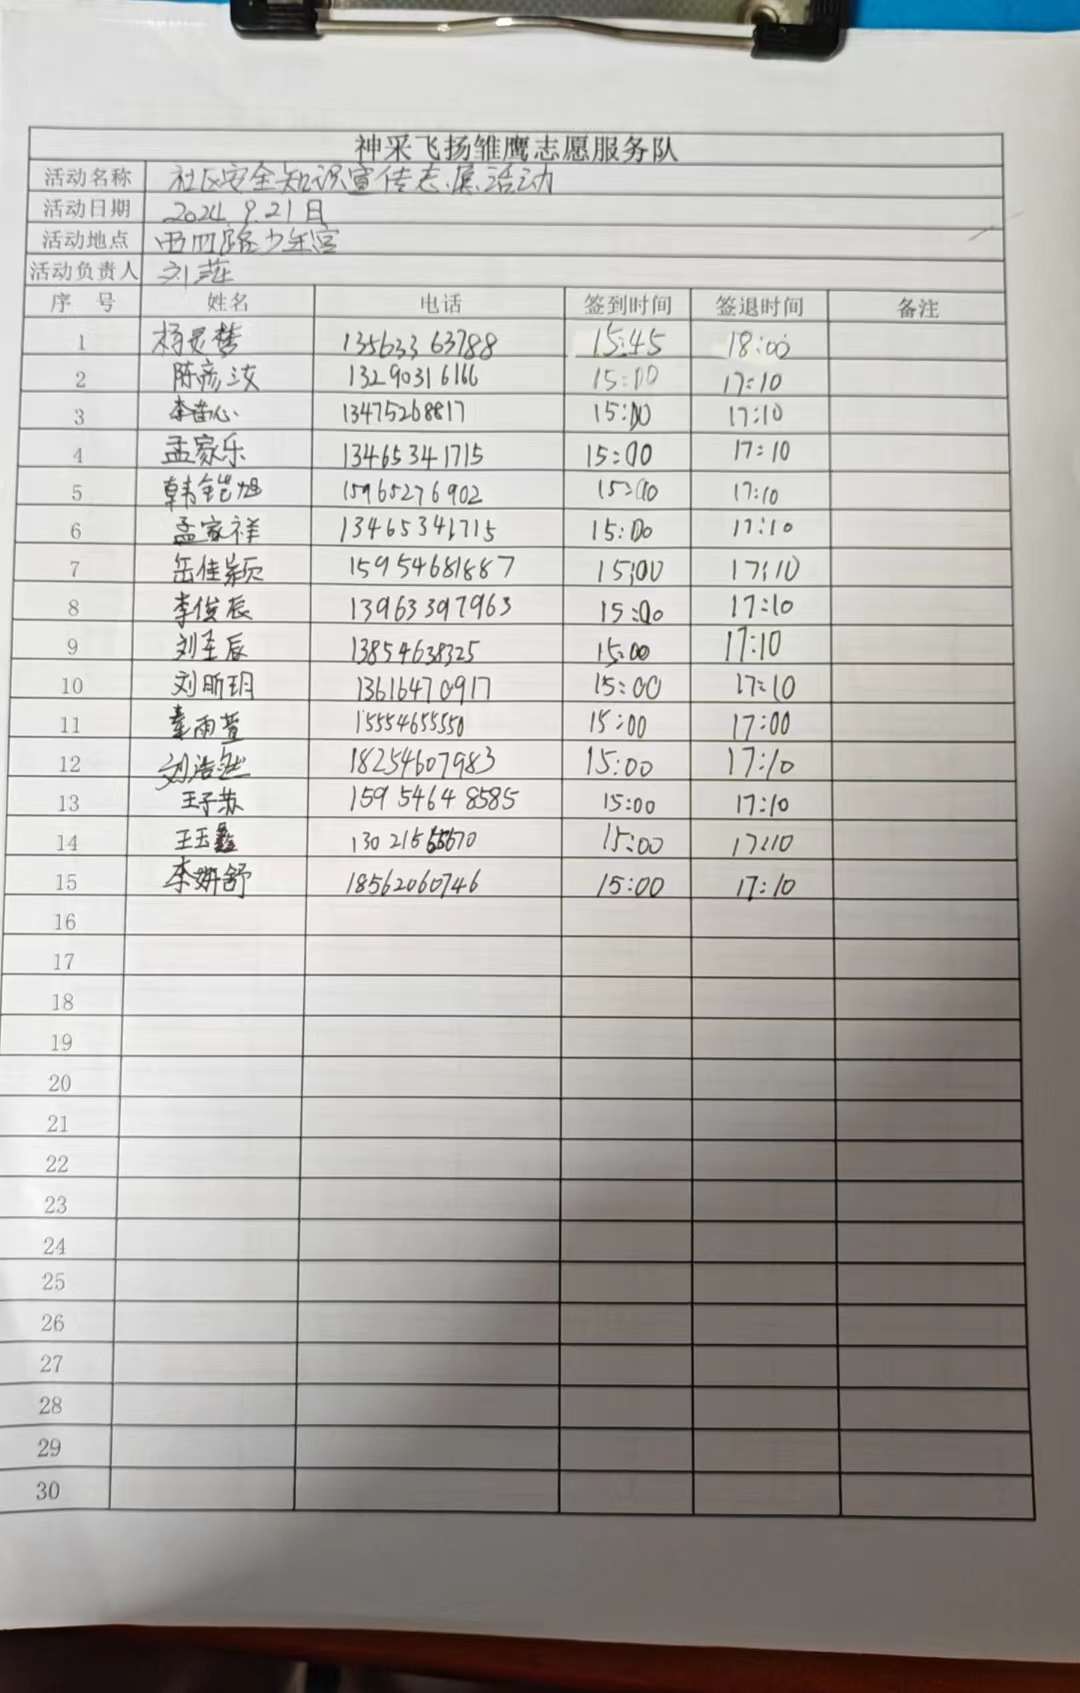 神采飞扬雏鹰志愿服务队
活动名称 社区安全知识宣传志愿活动
活动日期 2024.9.21日
活动地点 西四路少年宫
活动负责人 刘萍
序号 姓名 电话 签到时间 签退时间 备注
1 杨灵梦 13563363788 15:45 18:00
2 陈彦汝 13290316166 15:00 17:10
3 李苗心 13475268817 15:00 17:10
4 孟家乐 13465341715 15:00 17:10
5 韩铠旭 15965276902 15:00 17:10
6 孟家祥 13465341715 15:00 17:10
7 岳佳颖 15954681887 15:00 17:10
8 李俊辰 13963397963 15:00 17:10
9 刘至辰 13854638325 15:00 17:10
10 刘昕玥 13616470917 15:00 17:10
11 秦雨萱 15554655550 15:00 17:00
12 刘浩然 18254607983 15:00 17:10
13 王子苏 15954648585 15:00 17:10
14 王玉鑫 15:00 17:10
15 李妍舒 18562060746 15:00 17:10
16
17
18
19
20
21
22
23
24
25
26
27
28
29
30